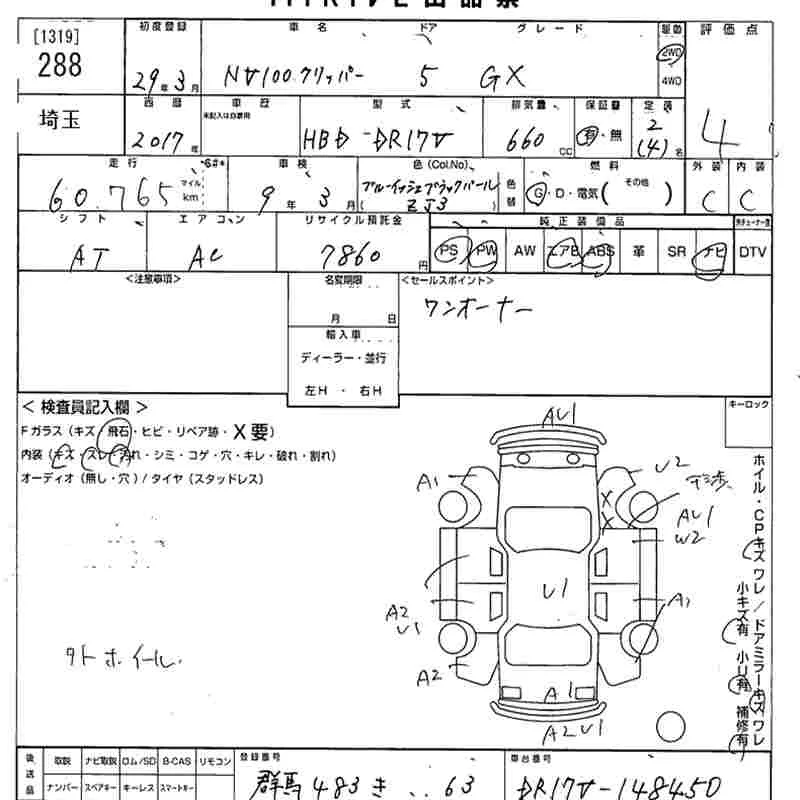 [1319]
288
埼玉
初度登録
29年3月
車名
NV100.クリッパー
ドア
5
グレード
GX
駆動
2WD
4WD
評価点
4
西暦
2017年
車歴
未記入は自家用
型式
HBD-DR17V
排気量
660cc
保証書
有・無
定員
2
(4)名
走行
60.765
マイル
km
車検
9年3月
色(Col,No)
ブルーイッシュブラックパール
(ZJ3)
色替
燃料
G・D・電気(その他)
外装
C
内装
C
シフト
AT
エアコン
AC
リサイクル預託金
7860円
純正装備品
PS PW AW エアB ABS 革 SR ナビ DTV
<注意事項>
名変期限
月 日
輸入車
ディーラー・並行
左H・右H
<セールスポイント>
ワンオーナー
<検査員記入欄>
キーロック
Fガラス(キズ・飛石・ヒビ・リペア跡・X要)
内装(キズ・スレ・汚れ・シミ・コゲ・穴・キレ・破れ・割れ)
オーディオ(無し・穴)/タイヤ(スタッドレス)
AU1
A1
U2
干渉
X
X
AU1
W2
U1
A2
U1
A1
A2
A1
A2U1
外ホイール.
ホイル・CPキズ ワレ/ドアミラーキズ ワレ
小キズ有 小U有 補修有
後送品
取説 ナビ取説 ロム/SD B-CAS リモコン
ナンバー スペアキー キーレス スマートキー
登録番号
群馬 483 き ..63
車台番号
DR17V-148450